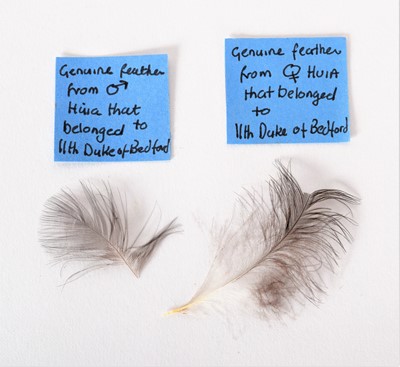 Genuine feather
from ♂
Huia that
belonged to
11th Duke of Bedford
Genuine feather
from ♀ HUIA
that belonged
to
11th Duke of Bedford